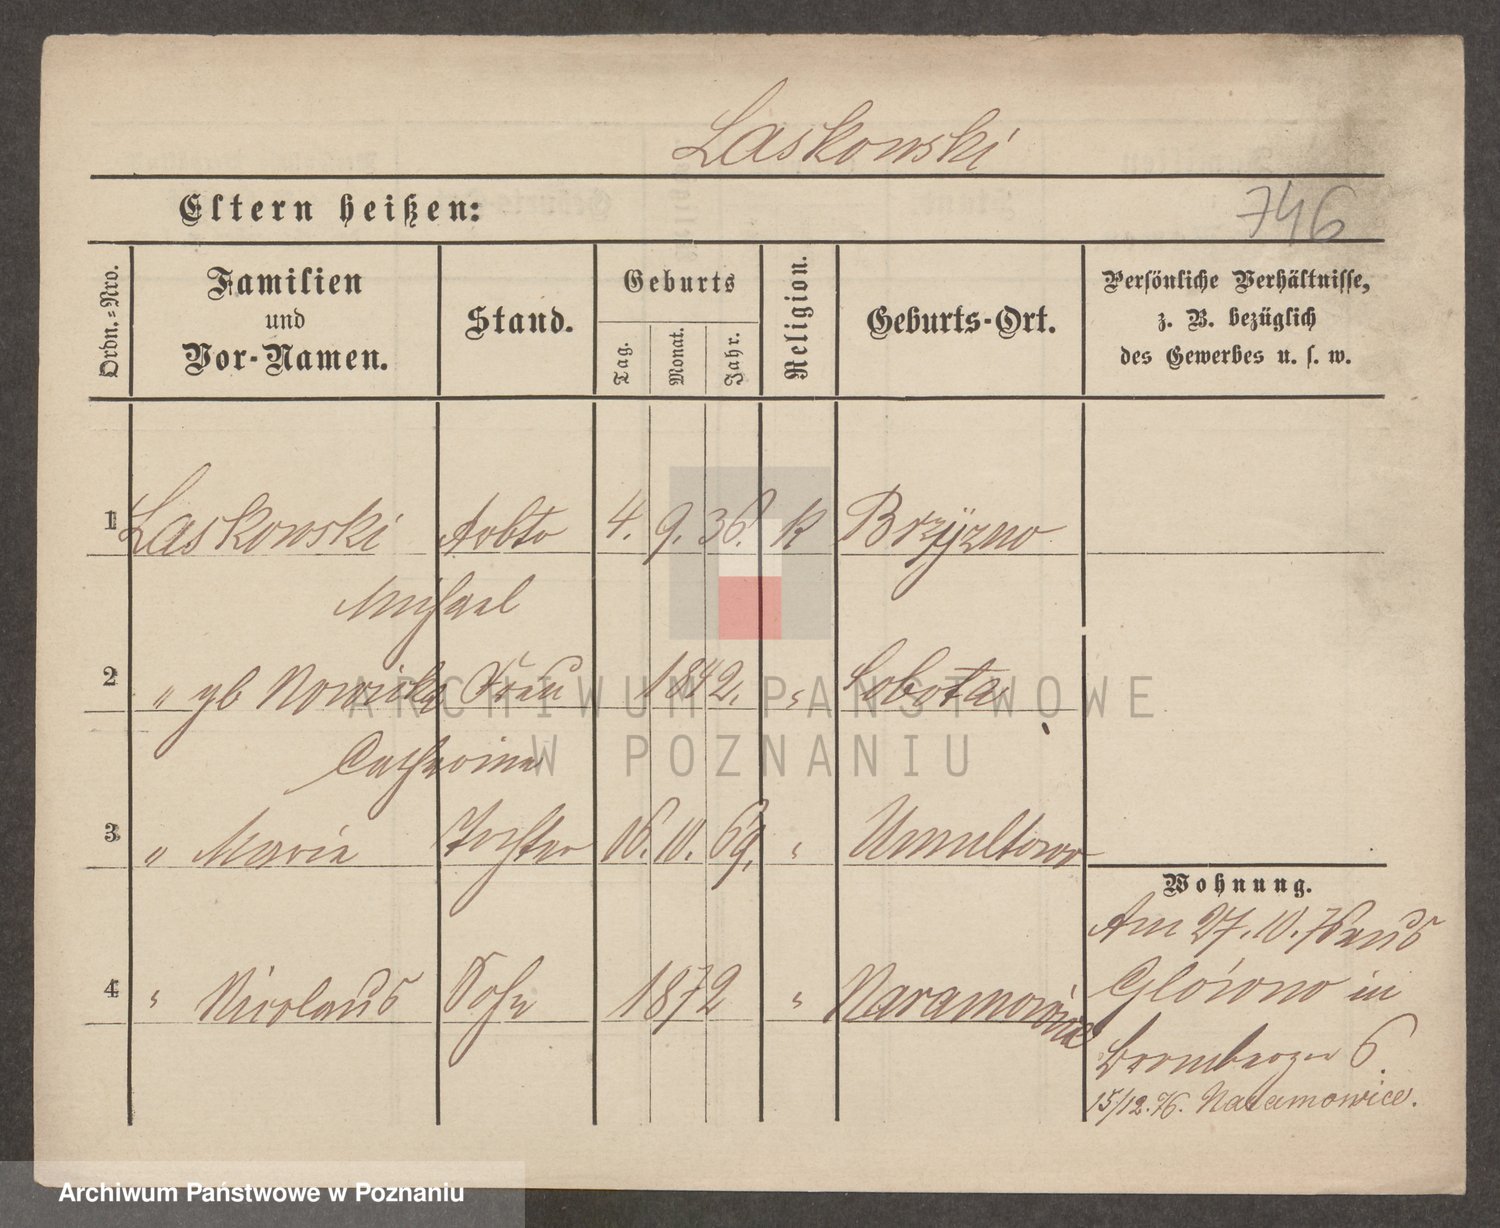 Laskowski
746
Eltern heißen:
Ordn.-Nro.
Familien
und
Vor-Namen.
Stand.
Geburts
Tag.
Monat.
Jahr.
Religion.
Geburts-Ort.
Persönliche Verhältnisse,
z. B. bezüglich
des Gewerbes u. s. w.
1 Laskowski Arbtr 4. 9. 36. k
Michael
2 " gb Nowicka Frau 1842. " Sobota
Catharina
3 " Maria Tochter 16. 10. 69. " Umultowo
Wohnung.
Am 27. 10. 76 aus
4 " Nicolaus Sohn 1872 " Naramowice
Glówno in
Bromberger 6
15/12. 76. Naramowice.
ARCHIWUM PAŃSTWOWE
W POZNANIU
Archiwum Państwowe w Poznaniu